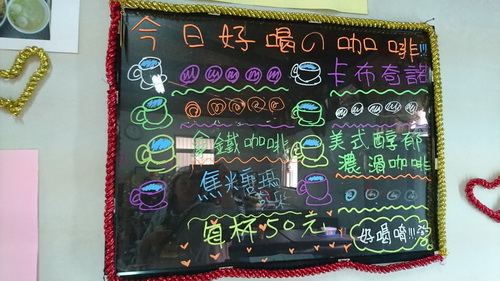 今日好喝の咖啡!!!
卡布奇諾
拿鐵咖啡
美式醇郁
濃滴咖啡
焦糖瑪
每杯50元
好喝唷!!!